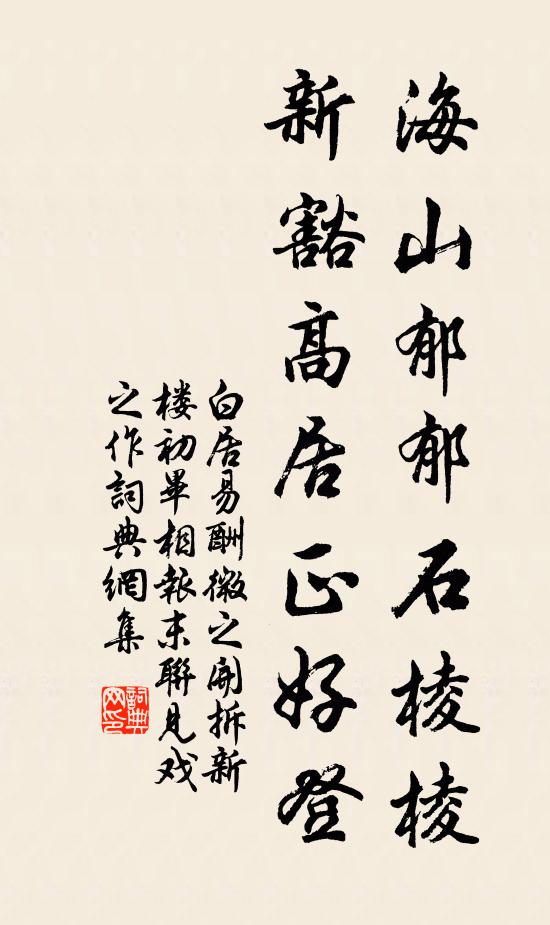 海山郁郁石棱棱
新豁高居正好登
白居易酬微之開拆新
楼初畢相報末聯見戏
之作詞典網集
詞典網印